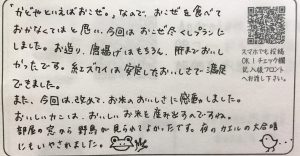 "かどやといえばおこぜ。"なので、おこぜを食べて
おかなくてはと思い、今回はおこぜ尽くしプランに
しました。お造り、唐揚げはもちろん、肝までおいし
かったです。紅ズワイは安定したおいしさで満足
できました。
また、今回は、改めてお米のおいしさに感激しました。
おいしいカニは、おいしいお米を産み出るのですね。
部屋の窓から野鳥が見られてよかったです。夜のカエルの大合唱
にもいやされました。
スマホでも投稿
OK!チェック欄
記入後フロント
へお渡し下さい。